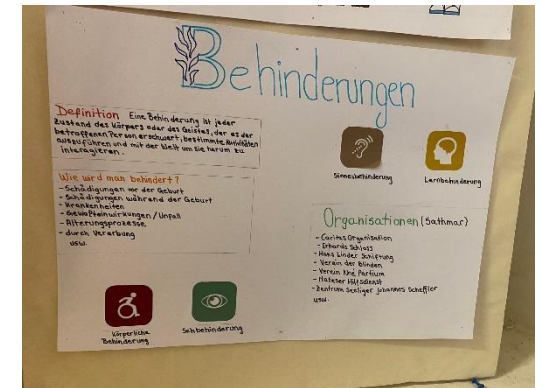 Behinderungen
Definition Eine Behinderung ist jeder
Zustand des Körpers oder des Geistes, der es der
betroffenen Person erschwert, bestimmte Aktivitäten
auszuführen und mit der Welt um sie herum zu
interagieren.
Wie wird man behindert?
- Schädigungen vor der Geburt
- Schädigungen während der Geburt
- Krankheiten
- Gewalteinwirkungen / Unfall
- Alterungsprozesse
- durch Vererbung
usw.
Körperliche
Behinderung
Sehbehinderung
Sinnesbehinderung
Lernbehinderung
Organisationen (Sathmar)
- Caritas Organisation
- Erhards Schloss
- Hans Linder Stiftung
- Verein der Blinden
- Verein Partium
- Malteser Hilfsdienst
- Zentrum Seeliger Johannes Scheffler
usw.